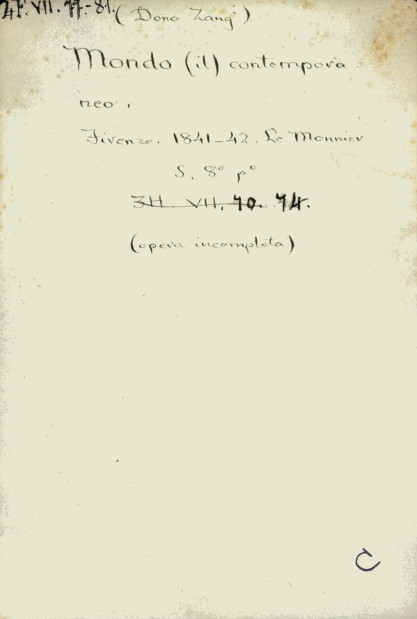 4F. VII. 77-81. (Dono Zang)
Mondo (il) contempora
neo.
Firenze. 1841-42. Le Monnier
5. 8° p°
3H VII. 70. 74.
(opera incompleta)
C